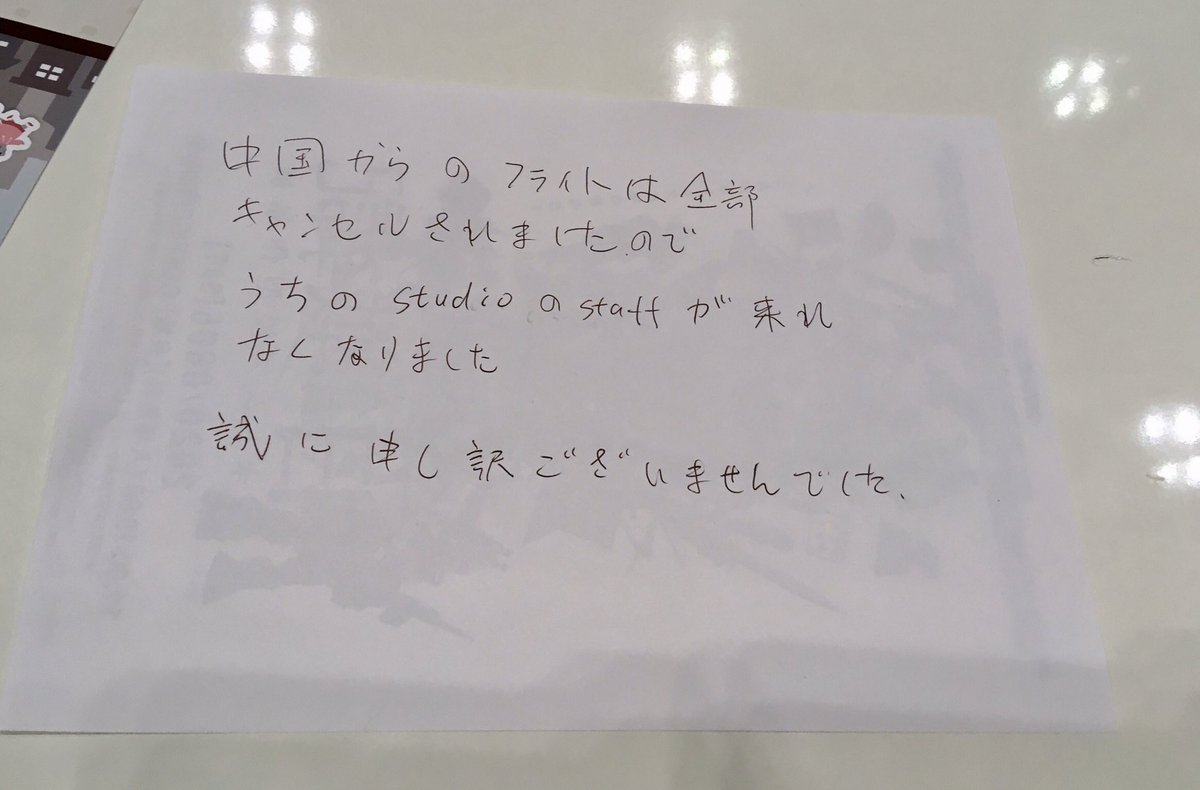 中国からのフライトは全部
キャンセルされましたので
うちの studio の staff が来れ
なくなりました
誠に申し訳ございませんでした、